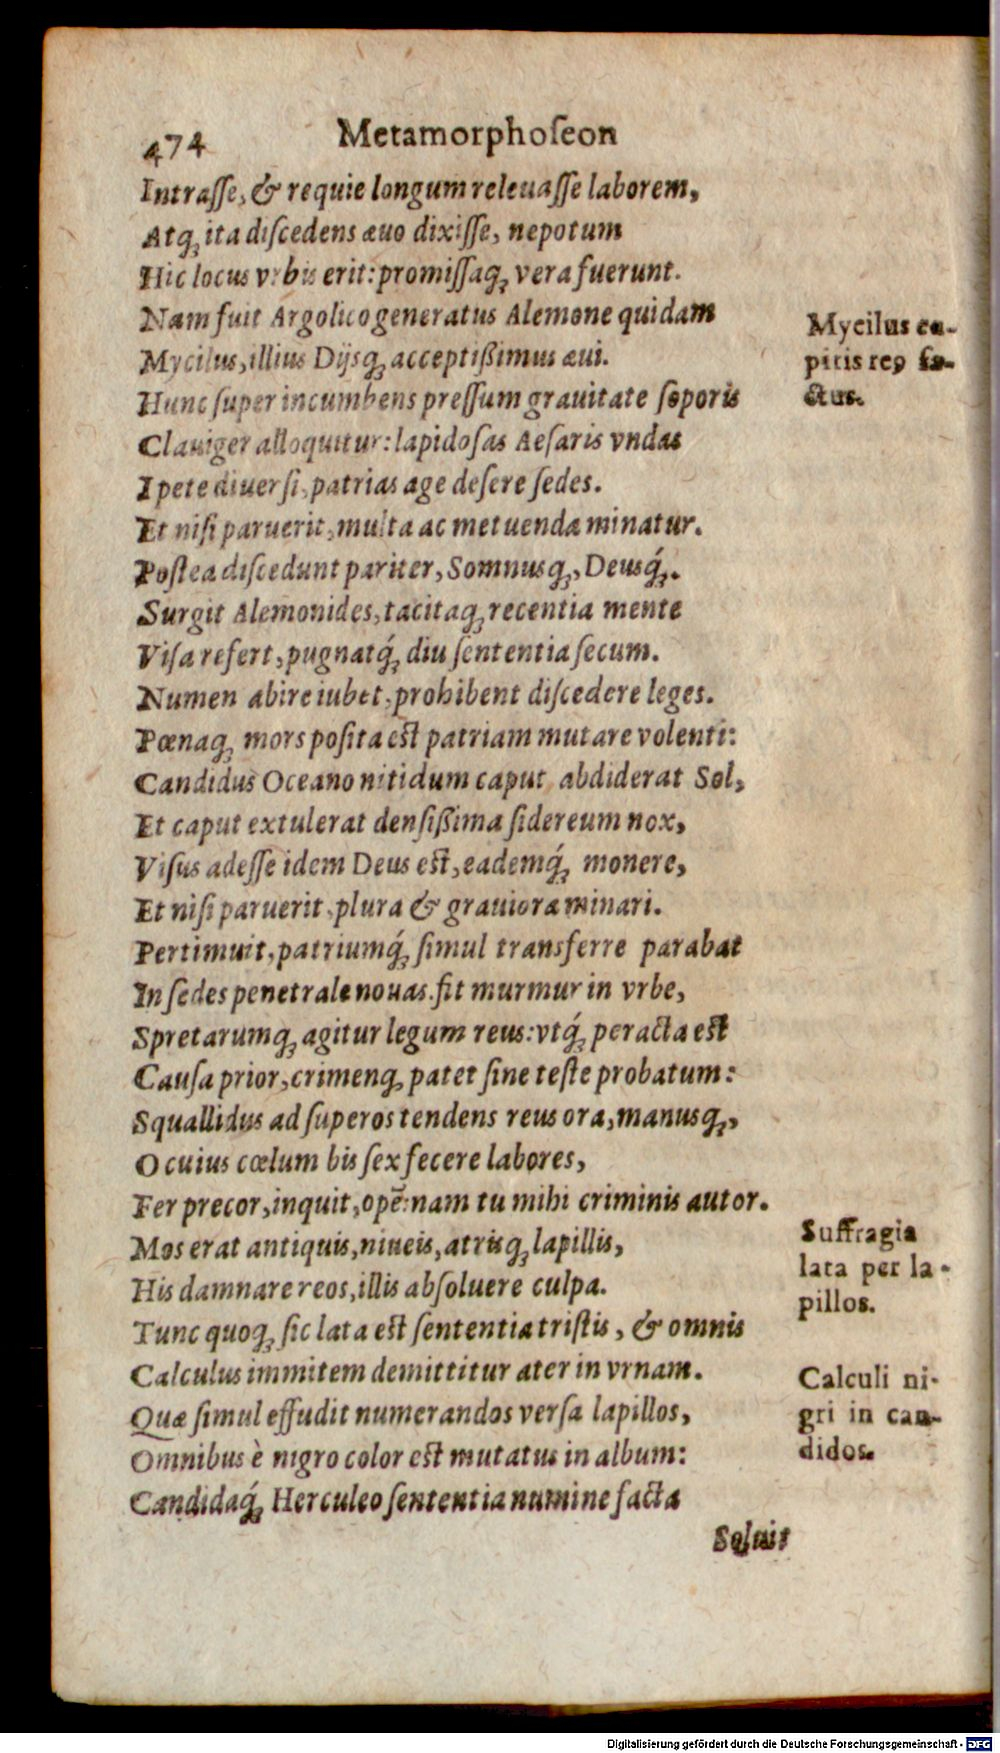 474 Metamorphoſeon
Intraſſe, & requie longum releuaſſe laborem,
Atq́ꝫ ita diſcedens æuo dixiſſe, nepotum
Hic locus vrbis erit: promiſſaqꝫ vera fuerunt.
Nam fuit Argolico generatus Alemone quidam
Mycilus, illius Dijsqꝫ acceptißimus æui.
Hunc ſuper incumbens preſſum grauitate ſoporis
Clauiger alloquitur: lapidoſas Aeſaris vndas
I pete diuerſi, patrias age deſere ſedes.
Et niſi paruerit, multa ac metuenda minatur.
Poſtea diſcedunt pariter, Somnusqꝫ, Deusq́ꝫ.
Surgit Alemonides, tacitaqꝫ recentia mente
Viſa refert, pugnatq́ꝫ diu ſententia ſecum.
Numen abire iubet, prohibent diſcedere leges.
Pœnaqꝫ mors poſita eſt patriam mutare volenti:
Candidus Oceano nitidum caput abdiderat Sol,
Et caput extulerat denſißima ſidereum nox,
Viſus adeſſe idem Deus eſt, eademq́ꝫ monere,
Et niſi paruerit, plura & grauiora minari.
Pertimuit, patriumq́ꝫ ſimul transferre parabat
In ſedes penetrale nouas. fit murmur in vrbe,
Spretarumqꝫ agitur legum reus: vtq́ꝫ peracta eſt
Cauſa prior, crimenqꝫ patet ſine teſte probatum:
Squallidus ad ſuperos tendens reus ora, manusqꝫ,
O cuius cœlum bis ſex fecere labores,
Fer precor, inquit, opē: nam tu mihi criminis autor.
Mos erat antiquis, niueis, atrisqꝫ lapillis,
His damnare reos, illis abſoluere culpa.
Tunc quoqꝫ ſic lata eſt ſententia triſtis, & omnis
Calculus immitem demittitur ater in vrnam.
Quæ ſimul effudit numerandos verſa lapillos,
Omnibus è nigro color eſt mutatus in album:
Candidaq́ꝫ Herculeo ſententia numine facta
Soluit
Mycilus ca-
pitis reꝰ fa-
ctus.
Suffragia
lata per la-
pillos.
Calculi ni-
gri in can-
didos.
Digitalisierung gefördert durch die Deutsche Forschungsgemeinschaft - DFG